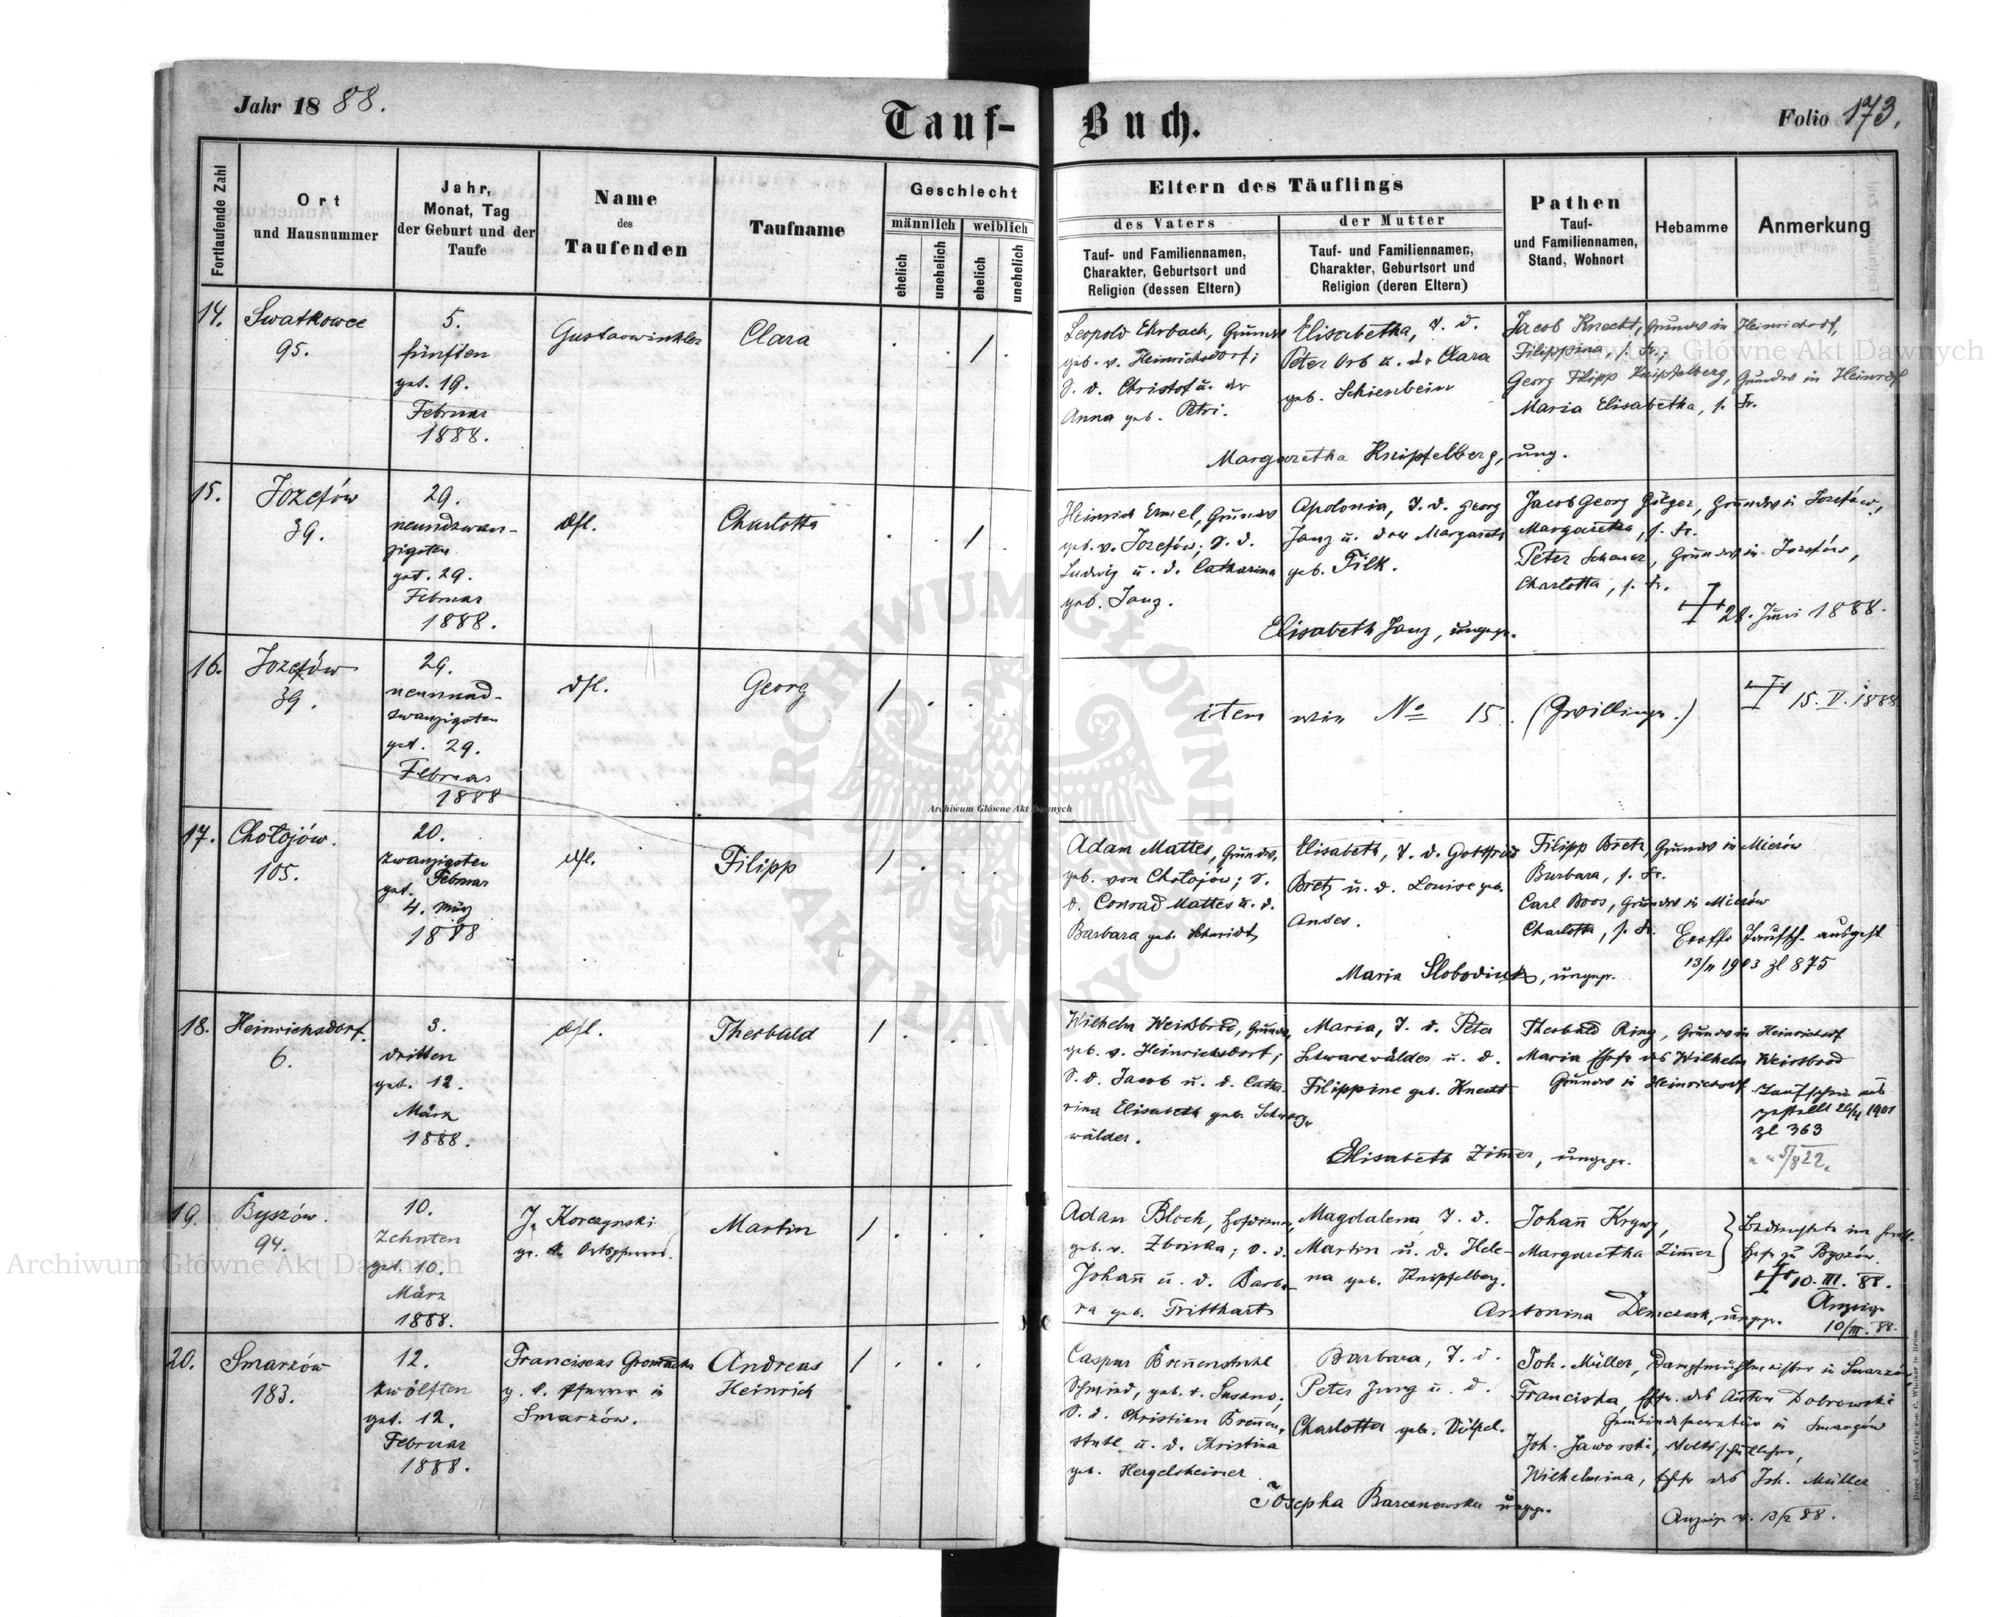 Jahr 1888.
Tauf-Buch.
Folio 173.
Fortlaufende Zahl
Ort
und Hausnummer
Jahr,
Monat, Tag
der Geburt und der
Taufe
Name
des
Taufenden
Taufname
Geschlecht
männlich
weiblich
ehelich
unehelich
ehelich
unehelich
Eltern des Täuflings
des Vaters
Tauf- und Familiennamen,
Charakter, Geburtsort und
Religion (dessen Eltern)
der Mutter
Tauf- und Familiennamen,
Charakter, Geburtsort und
Religion (deren Eltern)
Pathen
Tauf-
und Familiennamen,
Stand, Wohnort
Hebamme
Anmerkung
14.
Swatkowce
95.
5.
fünften
get. 19.
Februar
1888.
Gustav Winkler
Clara
Leopold Ehrbach, Grundw
geb. v. Heinrichsdorf;
S. d. Christof u. der
Anna geb. Petri.
Elisabetha, T. d.
Peter Orb u. dr Clara
geb. Schienbein
Jacob Knecht, Grundw in Heinrichsdorf,
Filippina, s. Fr.;
Georg Filipp Knipfelberg, Grundw in Heinrdf
Maria Elisabetha, s. Fr.
Margaretha Knipfelberg, ung.
15.
Jozefów
39.
29.
neundzwan-
zigsten
get. 29.
Februar
1888.
dsl.
Charlotta
Heinrich Ermel, Grundw
geb. v. Jozefów; S. d.
Ludwig u. d. Catharina
geb. Janz.
Apolonia, T. d. Georg
Janz u. der Margareta
geb. Filk.
Jacob Georg Götzer, Grundw in Jozefów,
Margaretha, s. Fr.
Peter Scherer, Grundw in Jozefów,
Charlotta, s. Fr.
28. Juni 1888.
Elisabeth Janz, ungepr.
16.
Jozefów
39.
29.
neunund-
zwanzigsten
get. 29.
Februar
1888
dsl.
Georg
item wie No 15. (Zwillinge.)
15. V. 1888
17.
Chołojów.
105.
20.
zwanzigsten
Februar
get.
4. März
1888
dsl.
Filipp
Adam Mattes, Grundw,
geb. von Chołojów; S.
d. Conrad Mattes u. d.
Barbara geb. Schmidt
Elisabeth, T. d. Gottfried
Bretz u. d. Louise geb.
Andes.
Filipp Bretz, Grundw in Mierów
Barbara, s. Fr.
Carl Boos, Grundw in Mierów
Charlotta, s. Fr.
Taufsch. ausgest
1903 zl 875
Maria Slobodiuk, ungepr.
18.
Heinrichsdorf.
6.
3.
dritten
get. 12.
März
1888.
dsl.
Theobald
Wilhelm Weißbrod, Grundw,
geb. v. Heinrichsdorf;
S. d. Jacob u. d. Catha-
rina Elisabeth geb. Schwarz-
wälder.
Maria, T. d. Peter
Schwarzwälder u. d.
Filippine geb. Knecht
Theobald Ring, Grundw in Heinrichsdf
Maria Ehefr des Wilhelm Weissbrod
Grundw in Heinrichsdorf
Taufschein aus
gestellt 26/4 1901
zl 363
Elisabeth Zimmer, ungepr.
19.
Byszów.
94.
10.
Zehnten
get. 10.
März
1888.
J. Korczynski
gr. k. Ortspfarrer.
Martin
Adam Bloch,
geb. v. Zboiska; S. d.
Johañ u. d. Barba-
ra geb. Tritthart
Magdalena, T. d.
Martin u. d. Hele-
na geb. Knipfelberg.
Johañ Krywy,
Margaretha Zimmer
zu Byszów.
10. III. 88.
Anzeige
10/III. 88.
Antonina Demczuk, ungepr.
20.
Smarzów
183.
12.
zwölften
get. 12.
Februar
1888.
Franciscus Gromadka
g. k. Pfarrer in
Smarzów.
Andreas
Heinrich
Caspar Breñenstuhl
Schmied, geb. v. Sapano;
S. d. Christian Breñen-
stuhl u. d. Christina
geb. Hergelsheimer
Barbara, T. d.
Peter Jung u. d.
Charlotta geb. Völpel.
Joh. Müller, Dampfmühlmeister in Smarzów
Franciska, Ehfr. des Anton Dobrowski
in Smarzów
Joh. Jaworski, Volksschullehrer,
Wilhelmina, Ehfr des Joh. Müller
Josepha Barcenowska ungepr.
Anzeige v. 13/2 88.
Archiwum Główne Akt Dawnych
Archiwum Główne Akt Dawnych
Archiwum Główne Akt Dawnych
ARCHIWUM GŁÓWNE AKT DAWNYCH